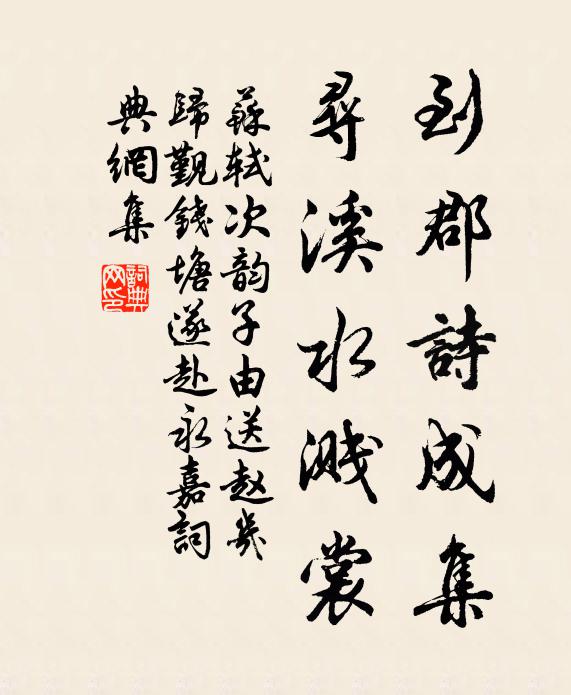 到郡詩成集
尋溪水濺裳
蘇軾次韵子由送赵㞦
歸觐錢塘遂赴永嘉詞
典網集
詞典网印